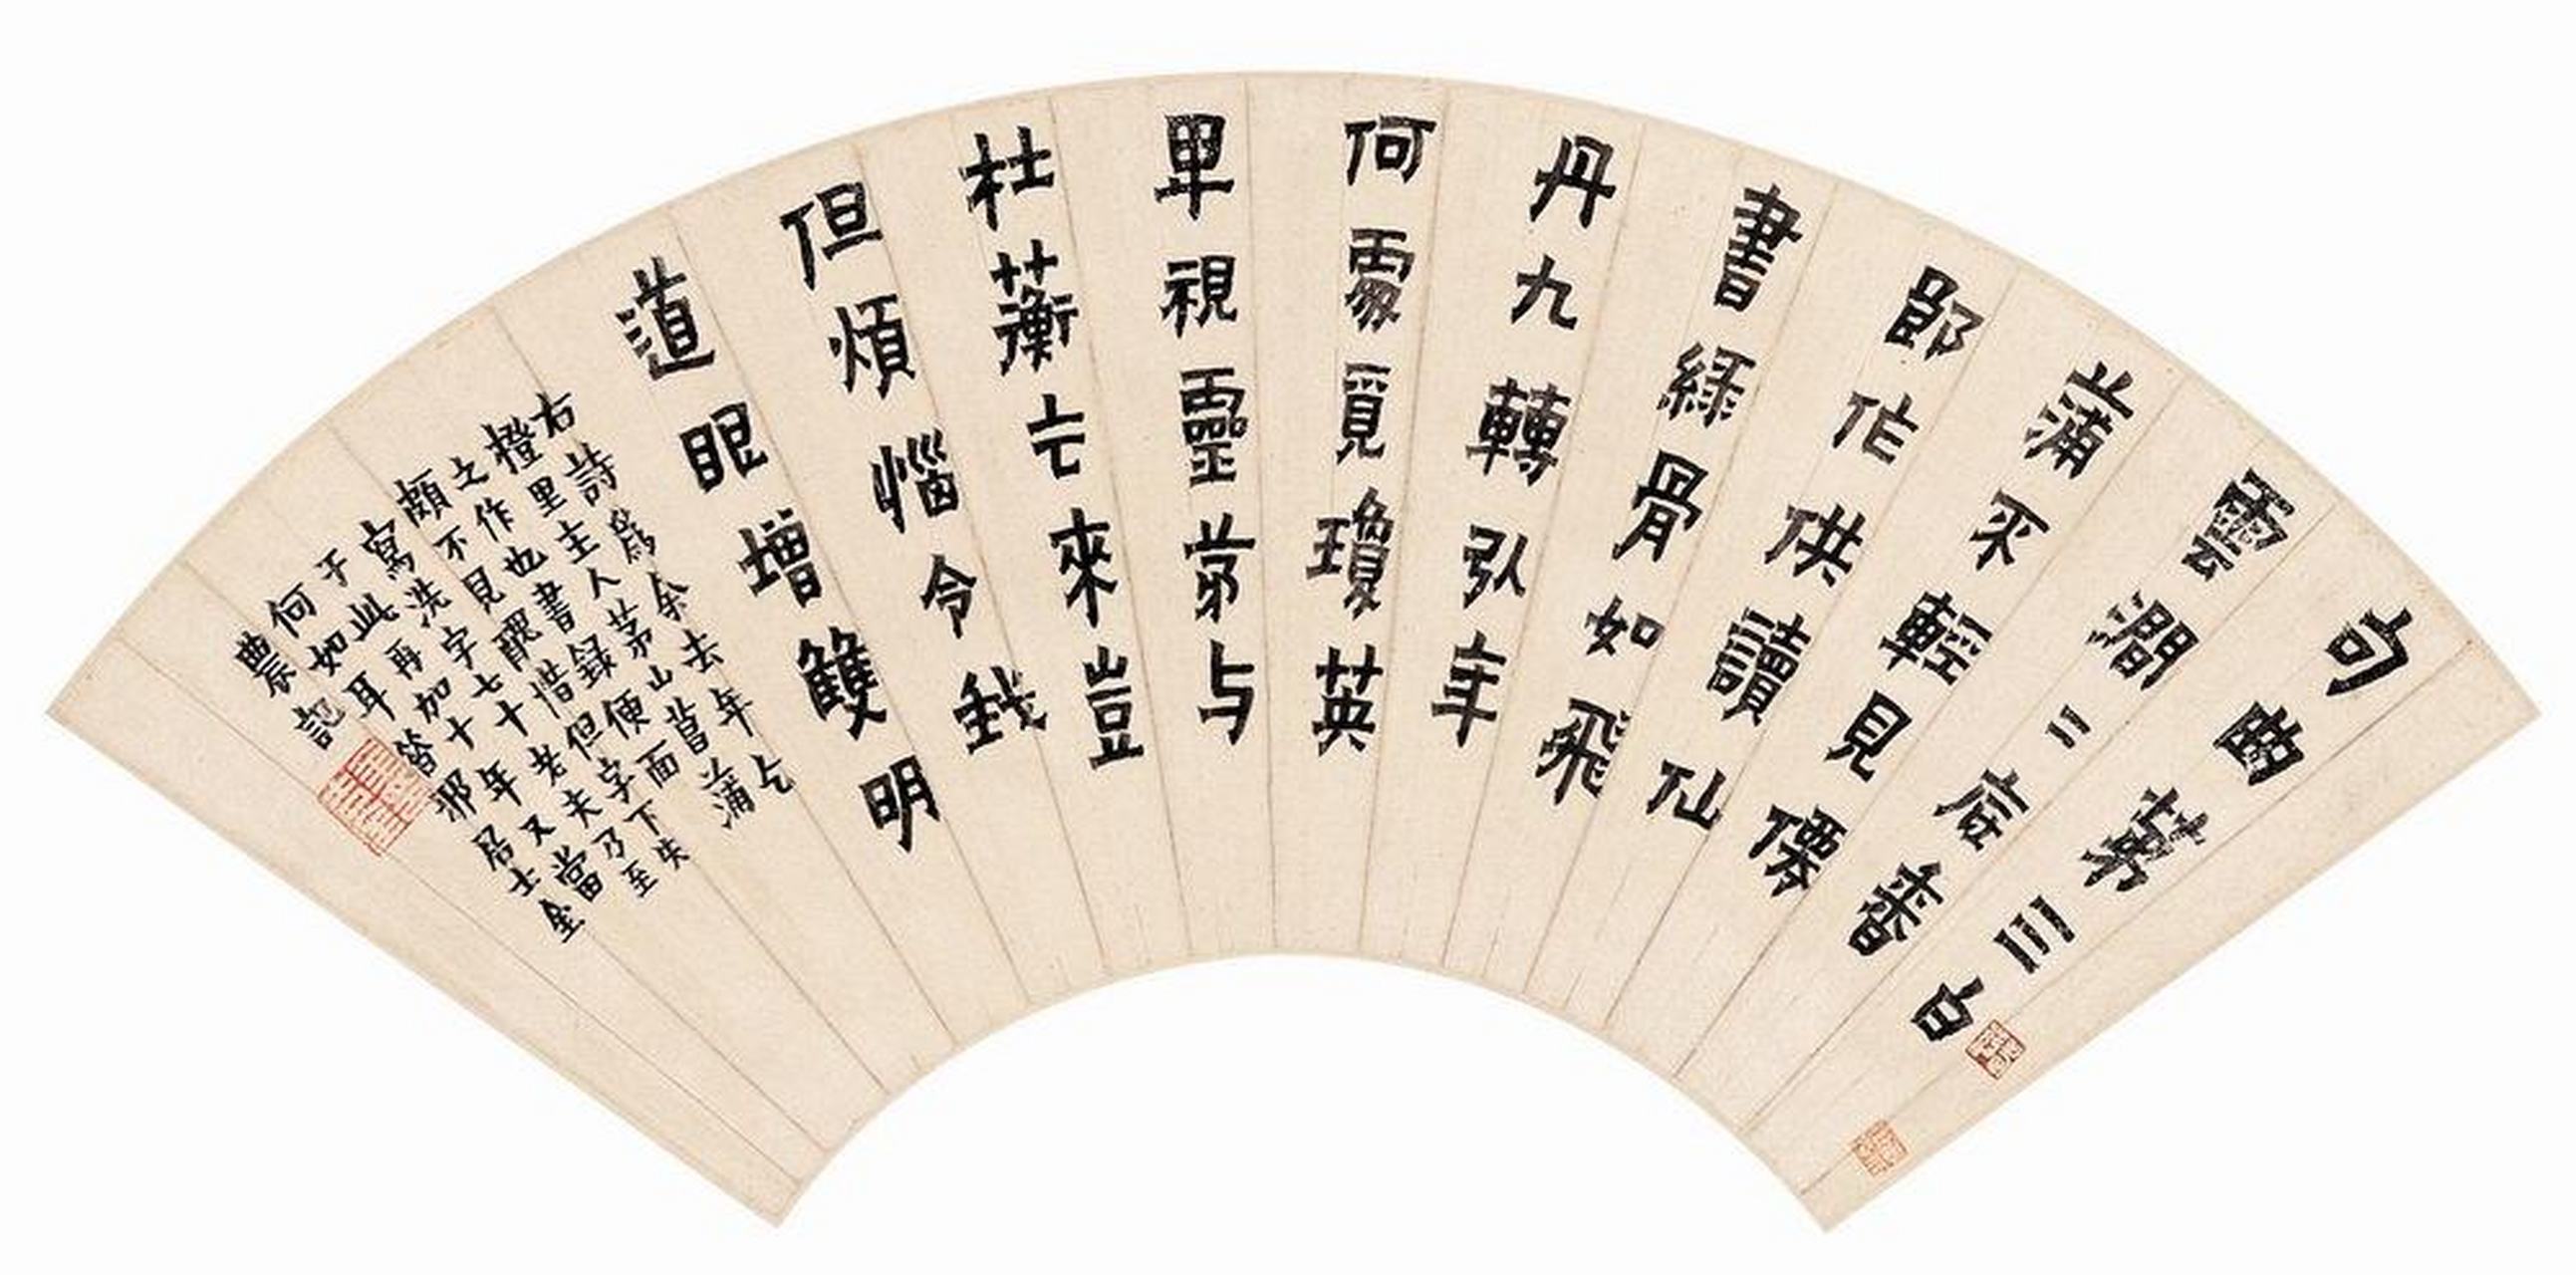 句曲第三白
雲澗二底香
蒲不輕見僊
郎作供讀仙
書綠骨如飛
丹九轉弘年
何處覓瓊英
卑視靈茅与
杜蘅亡來豈
但煩惱令我
道眼增雙明
右詩爲余去年乞蒲
橙里主人茅山菖
之作也書錄便面
頗不見醜惜但字下失
寫洗字七十老夫乃至
于此再加十年又當
何如耳昔邪居士金
農記